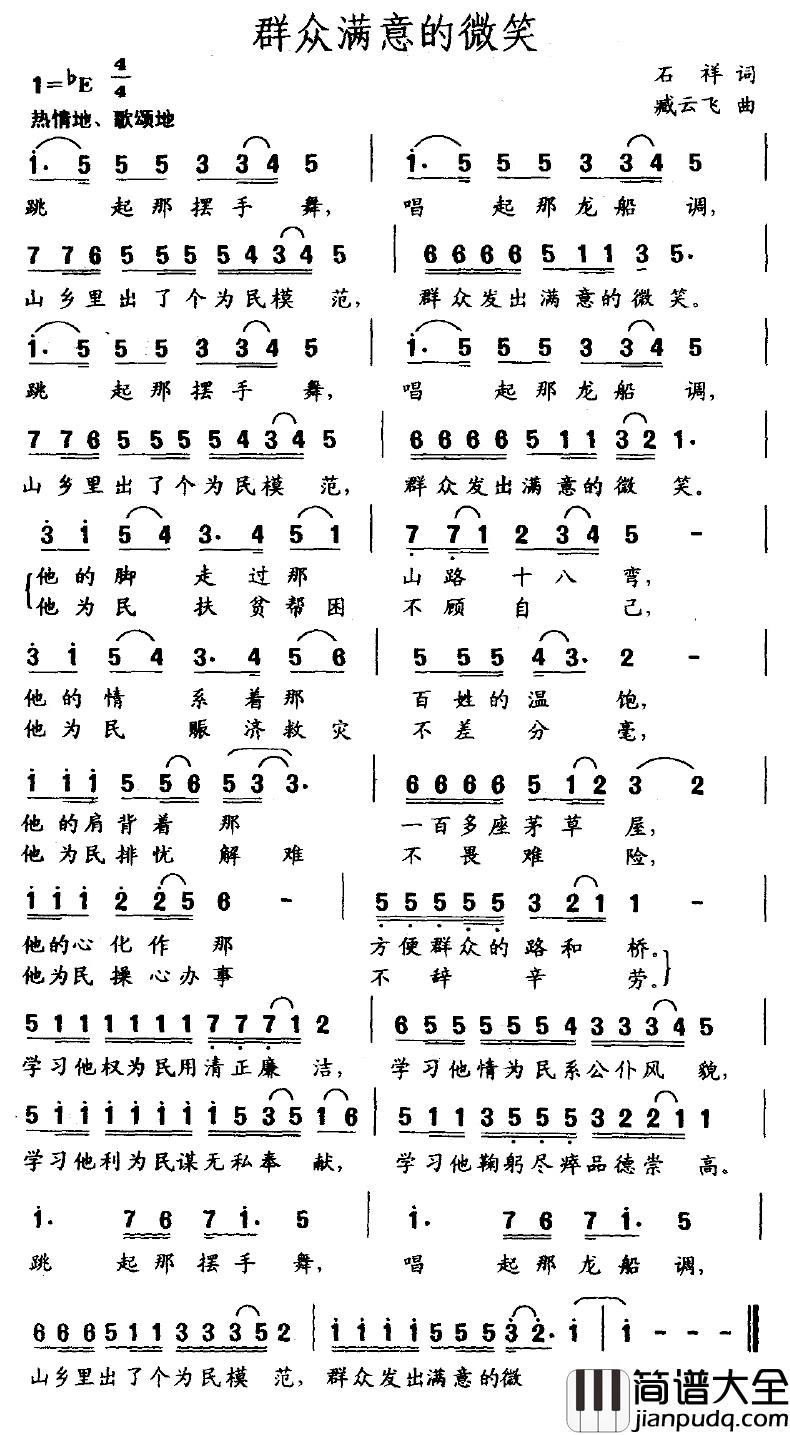 群众满意的微笑
1=♭E 4/4
石祥 词
热情地、歌颂地
臧云飞 曲
1̇. 5 5 5 3 3 4 5 | 1̇. 5 5 5 3 3 4 5 |
跳 起那摆手 舞, 唱 起那龙船 调,
7 7 6 5 5 5 5 4 3 4 5 | 6 6 6 6 5 1 1 3 5. |
山乡里出了个为民模 范, 群众发出满意的微笑。
1̇. 5 5 5 3 3 4 5 | 1̇. 5 5 5 3 3 4 5 |
跳 起那摆手 舞, 唱 起那龙船 调,
7 7 6 5 5 5 5 4 3 4 5 | 6 6 6 6 5 1 1 3 2 1. |
山乡里出了个为民模 范, 群众发出满意的微 笑。
3̇ 1̇ 5 4 3. 4 5 1 | 7̣ 7̣ 1 2 3 4 5 - |
他的脚 走过那 山路 十八 弯,
他为民 扶贫帮困 不顾 自 己,
3̇ 1̇ 5 4 3. 4 5 6 | 5 5 5 4 3. 2 - |
他的情 系着那 百姓的温 饱,
他为民 赈济救灾 不差 分 毫,
1̇ 1̇ 1̇ 5 5 6 5 3 3. | 6 6 6 6 5 1 2 3 2 |
他的肩背着 那 一百多座茅草 屋,
他为民排忧 解 难 不 畏 难 险,
1̇ 1̇ 1̇ 2̇ 2̇ 5 6 - | 5̣ 5̣ 5̣ 5̣ 5̣ 3 2 1 1 - |
他的心化作 那 方便群众的路和 桥。
他为民操心办事 不 辞 辛 劳。
5 1 1 1 1 1 1 7̣ 7̣ 7̣ 1 2 | 6 5 5 5 5 5 4 3 3 3 4 5 |
学习他权为民用清正廉 洁, 学习他情为民系公仆风 貌,
5 1̇ 1̇ 1̇ 1̇ 1̇ 1̇ 1̇ 5 3 5 1̇ 6 | 5 1 1 3 5̣ 5̣ 5̣ 3 2 2 1 1 |
学习他利为民谋无私奉 献, 学习他鞠躬尽瘁品德崇 高。
1̇. 7 6 7 1̇. 5 | 1̇. 7 6 7 1̇. 5 |
跳 起那摆手 舞, 唱 起那龙船 调,
6 6 6 5 1 1 3 3 3 5 2 | 1̇ 1̇ 1̇ 1̇ 5 5 5 3̇ 2̇. 1̇ | 1̇ - - - ‖
山乡里出了个为民模 范, 群众发出满意的微
简谱大全
jianpudq.com